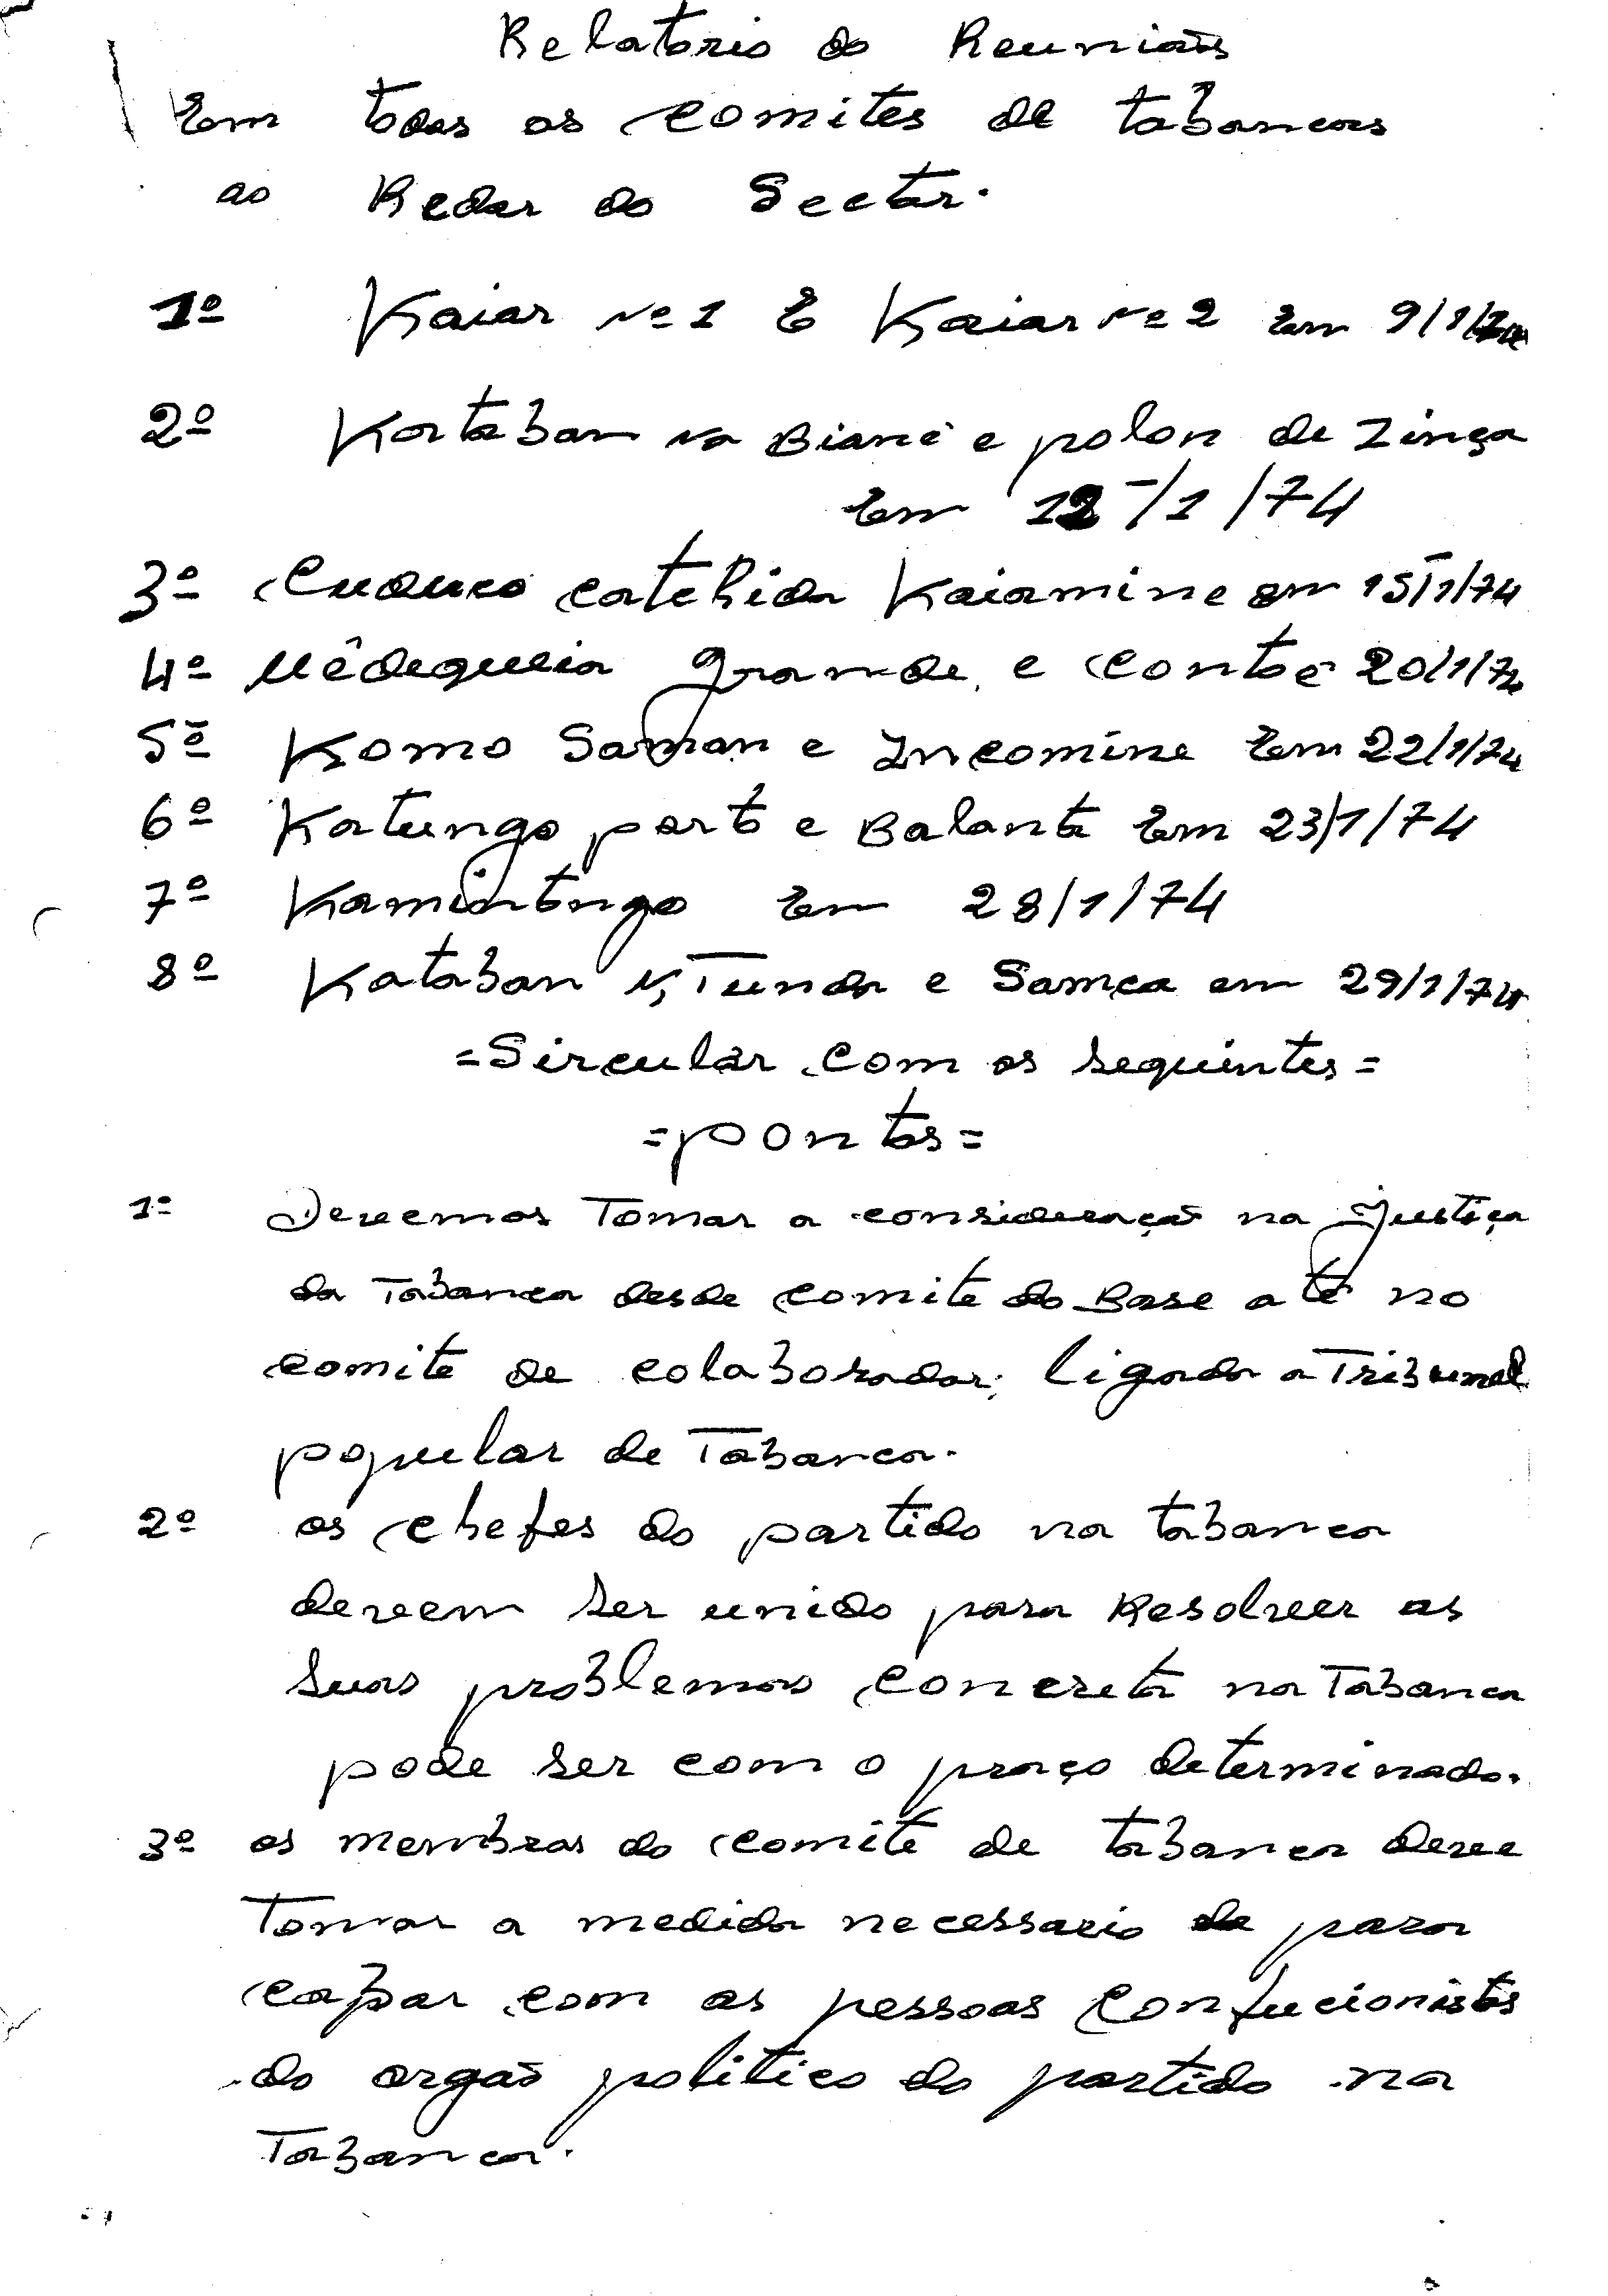 Relatorio do Reuniões
Em todas os comites de tabancas
ao Redor do Sector.
1º Kaiar nº 1 E Kaiar nº 2 Em 9/1/74
2º Kataban na Biané e polon de Zinça
Em 12/1/74
3º Cuduco catchida Kaiamine em 15/1/74
4º Mêdequeia grande, e Contoe 20/1/74
5º Komo Saman e Incomine Em 22/1/74
6º Katungo porto e Balanta Em 23/1/74
7º Kamintongo Em 28/1/74
8º Kataban N, Tunda e Samca em 29/1/74
=Sircular com os seguintes=
=pontos=
1º Devemos Tomar a consideração na justiça
da Tabanca desde comite do Base até no
comite de colaborador; ligada a Tribunal
popular de Tabanca.
2º os chefes do partido na tabanca
devem ser unido para Resolver as
suas problemas concreta na Tabanca
pode ser com o praço determinado.
3º os membros do comite de tabanca deve
Tomar a medida necessario para
capar com as pessoas confucionistas
do orgão politico do partido na
Tabanca.